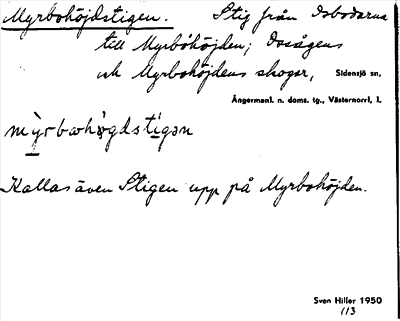 Myrbohöjdstigen. Stig från Osbodarna
till Myrbohöjden; Ossågens
och Myrbohöjdens skogar, Sidensjö sn,
Ångermanl. n. doms. tg., Västernorrl. l.
Kallas även Stigen upp på Myrbohöjden.
Sven Hiller 1950
113